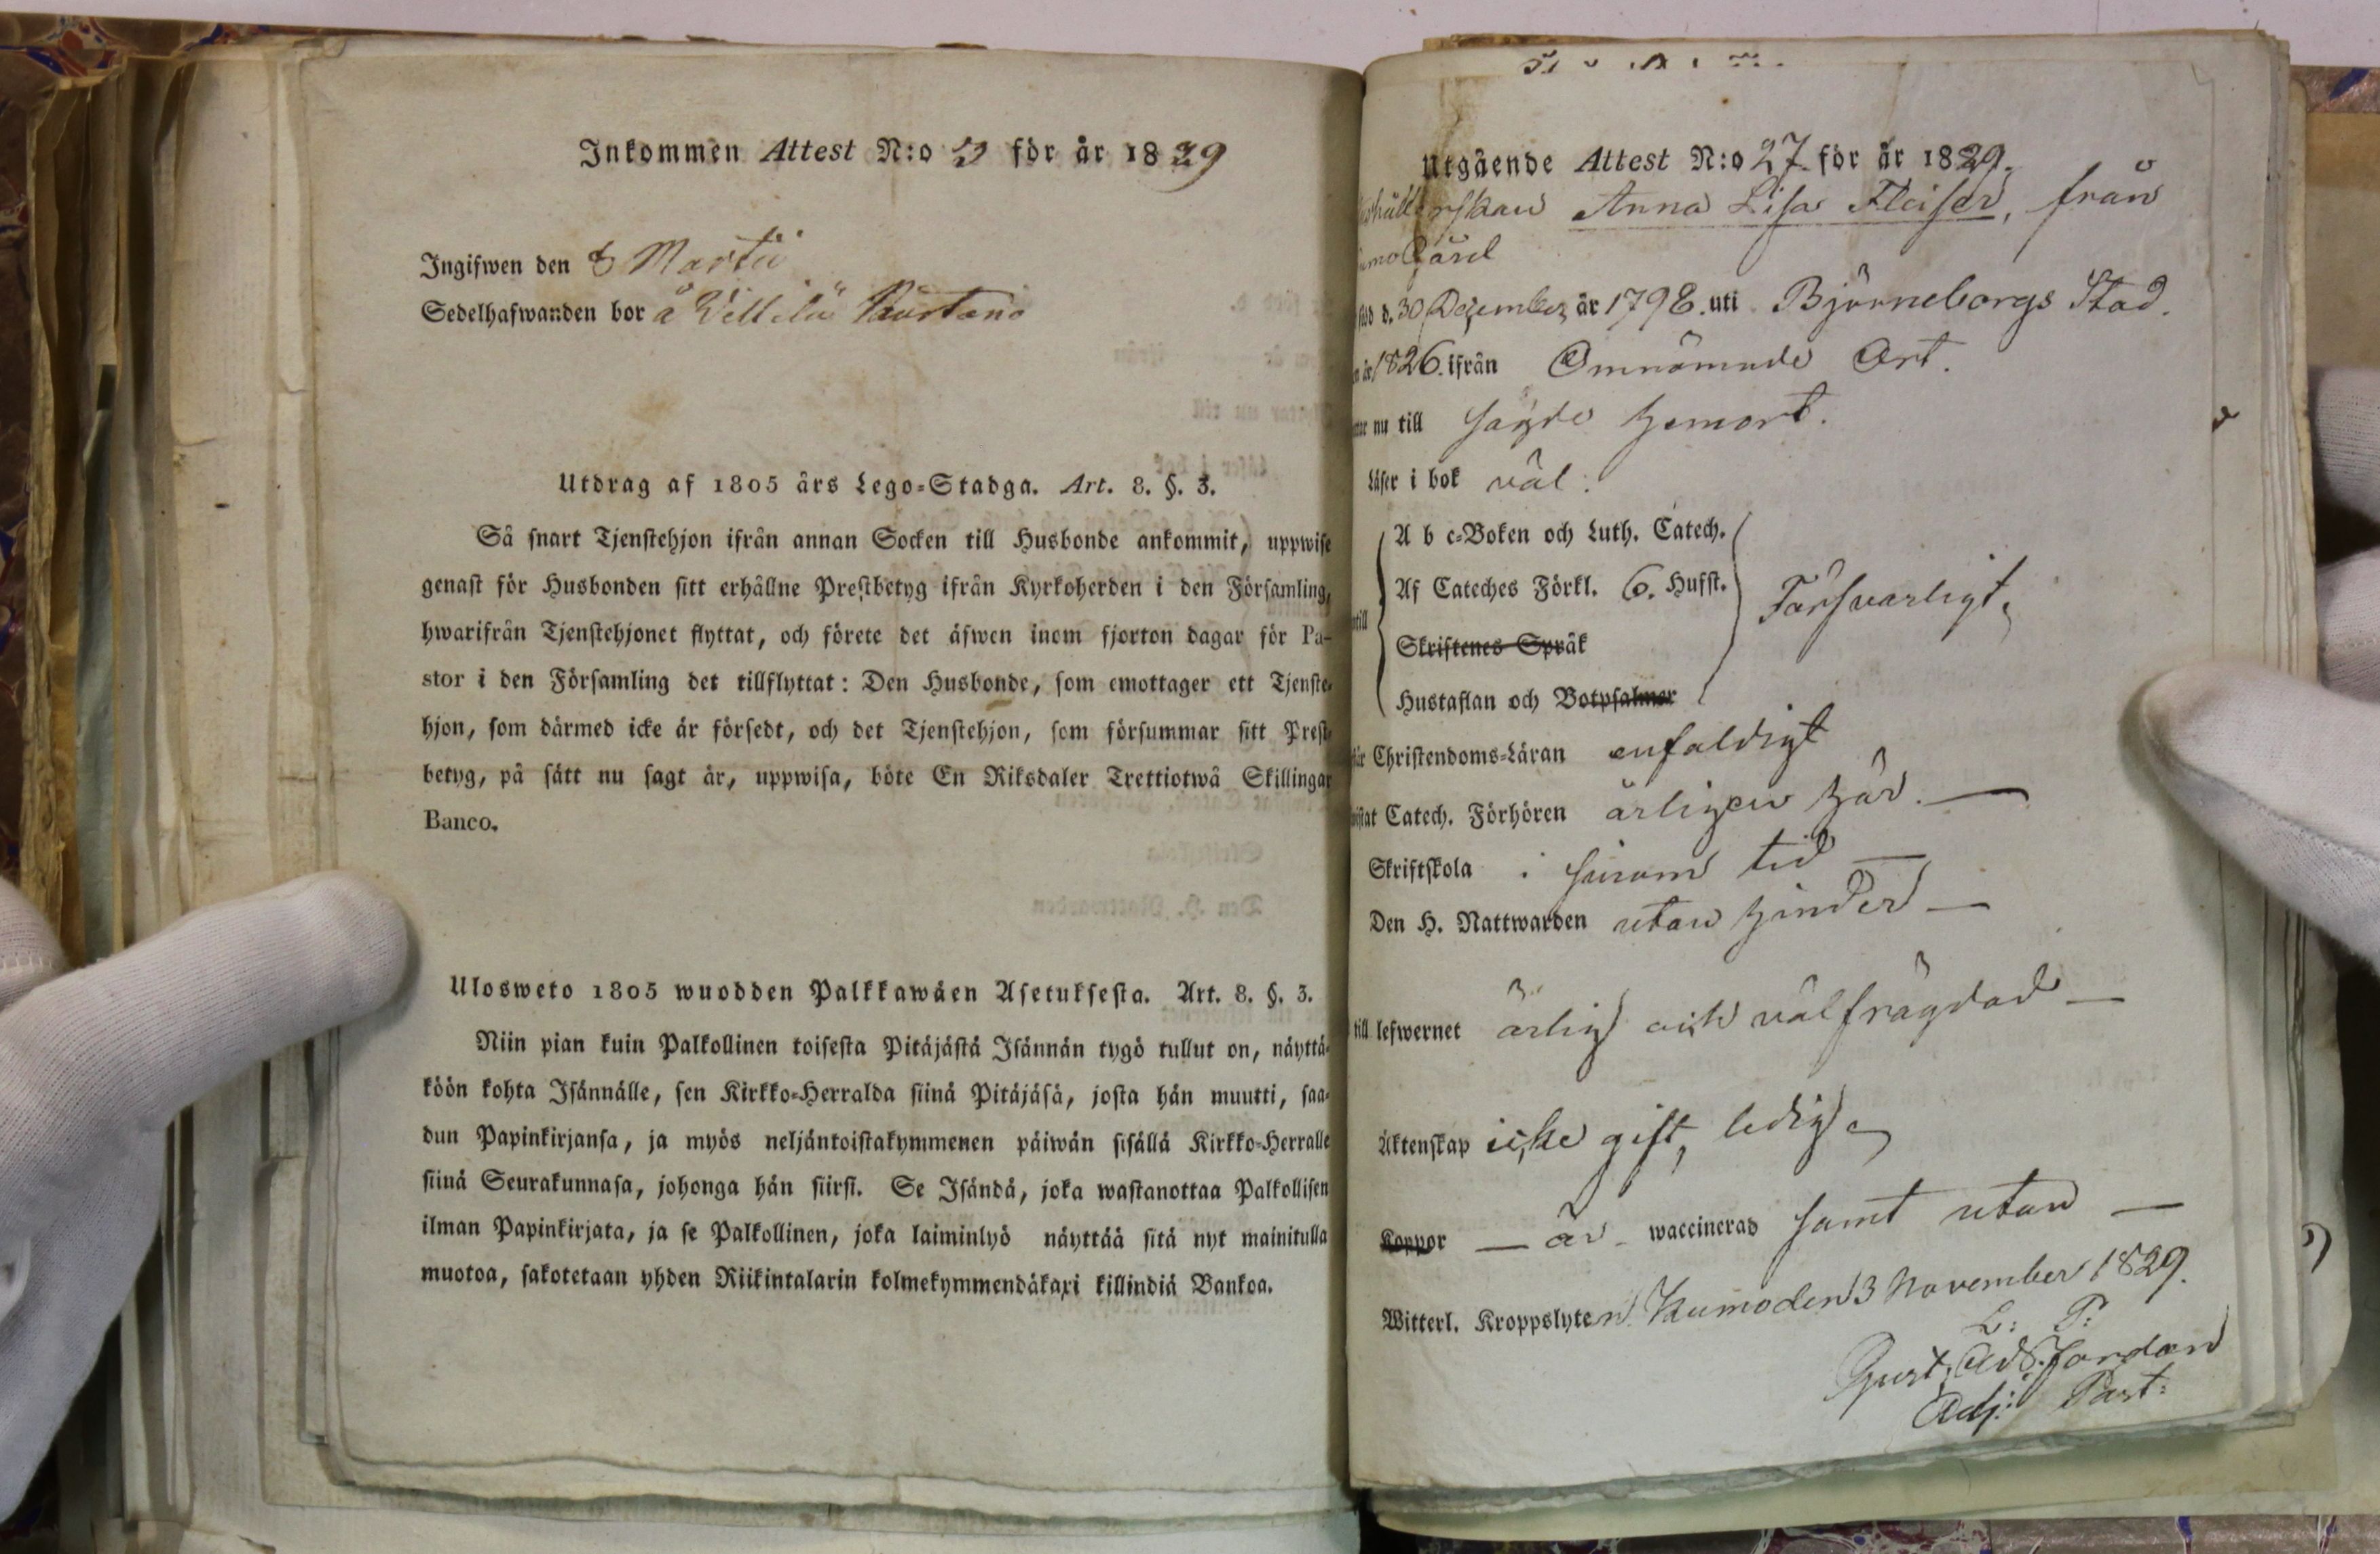 Inkommen Attest N:o för år 1829
Ingifwen den 8 Martii
Sedelhafwanden bor å
Utdrag af 1805 års Lego-Stadga. Art. 8. §. 3.
Så snart Tjenstehjon ifrån annan Socken till Husbonde ankommit, uppwise
genast för Husbonden sitt erhållne Prestbetyg ifrån Kyrkoherden i den Församling,
hwarifrån Tjenstehjonet flyttat, och förete det äfwen inom fjorton dagar för Pa-
stor i den Församling det tillflyttat: Den Husbonde, som emottager ett Tjenste-
hjon, som därmed icke är försedt, och det Tjenstehjon, som försummar sitt Prest-
betyg, på sätt nu sagt är, uppwisa, böte En Riksdaler Trettiotwå Skillingar
Banco.
Ulosweto 1805 wuodden Palkkawäen Asetuksesta. Art. 8. §. 3.
Niin pian kuin Palkollinen toisesta Pitäjästä Isännän tygö tullut on, näyttä-
köön kohta Isännälle, sen Kirkko-Herralda siinä Pitäjäsä, josta hän muutti, saa-
dun Papinkirjansa, ja myös neljäntoistakymmenen päiwän sisällä Kirkko-Herralle
siinä Seurakunnasa, johonga hän siirsi. Se Isändä, joka wastanottaa Palkollisen
ilman Papinkirjata, ja se Palkollinen, joka laiminlyö näyttää sitä nyt mainitulla
muotoa, sakotetaan yhden Riikintalarin kolmekymmendäkaxi killindiä Bankoa.
Utgående Attest N:o 27 för år 1829.
Anna Lisa Fleiser, från
gård
d. 30 December år 1798. uti Björneborgs Stad.
år 1826. ifrån Omnämnde Ort.
nu till sagde hemort.
Läser i bok väl.
A b c-Boken och Luth. Catech.
Af Cateches Förkl. 6. Hufst. Försvarligt
Skriftenes Språk
Hustaflan och Botpsalmer
Christendoms-Läran enfaldigt
Catech. Förhören årligen här. —
Skriftskola i sinom tid —
Den H. Nattwarden utan hinder —
till lefwernet ärlig och välfrägdad —
Äktenskap icke gift, ledig
Koppor — är waccinerad samt utan —
Witterl. Kroppslyten. Kumo den 3 November 1829.
L: P:
Gust: Ad:
Adj: Past: